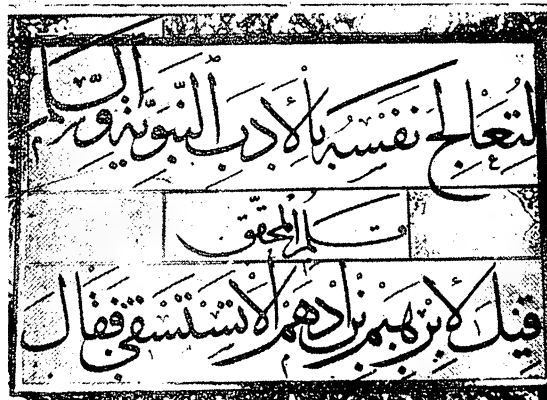 لتعالج نفسه بالأدب النبوية
قلم المحقق
قيل لإبرهيم بن أدهم ألا تستسقي فقال